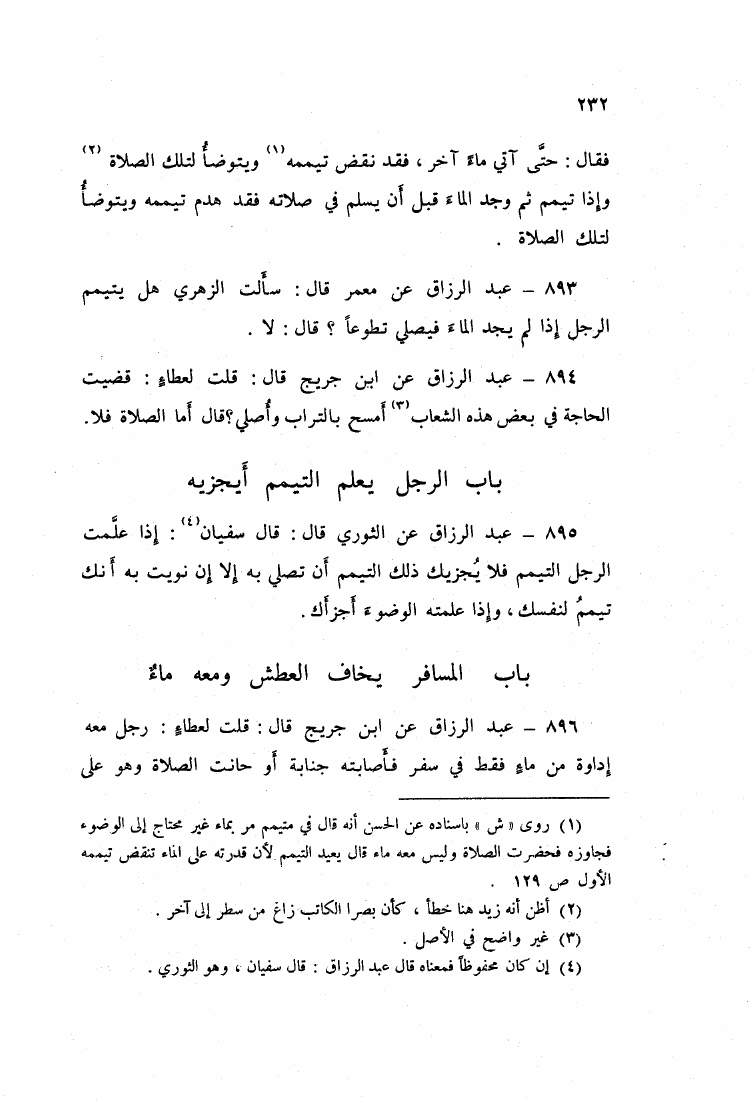 ٢٣٢
فقال : حتَّى آتي ماءً آخر ، فقد نقض تيممه(١) ويتوضأُ لتلك الصلاة (٢)
وإذا تيمم ثم وجد الماء قبل أن يسلم في صلاته فقد هدم تيممه ويتوضأُ
لتلك الصلاة .
٨٩٣ – عبد الرزاق عن معمر قال : سأَلت الزهري هل يتيمم
الرجل إذا لم يجد الماء فيصلي تطوعاً ؟ قال : لا .
٨٩٤ – عبد الرزاق عن ابن جريج قال : قلت لعطاءٍ : قضيت
الحاجة في بعض هذه الشعاب(٣) أَمسح بالتراب وأُصلي؟ قال أَما الصلاة فلا.
باب الرجل يعلم التيمم أَيجزيه
٨٩٥ – عبد الرزاق عن الثوري قال : قال سفيان(٤) : إذا علَّمت
الرجل التيمم فلا يُجزيك ذلك التيمم أَن تصلي به إلا إن نويت به أَنك
تيممُ لنفسك ، وإذا علمته الوضوء أَجزأَك .
باب المسافر يخاف العطش ومعه ماءٌ
٨٩٦ – عبد الرزاق عن ابن جريج قال : قلت لعطاءٍ : رجل معه
إداوة من ماءٍ فقط في سفر فأَصابته جنابة أَو حانت الصلاة وهو على
(١) روى « ش » باسناده عن الحسن أنه قال في متيمم مر بماء غير محتاج إلى الوضوء
فجاوزه فحضرت الصلاة وليس معه ماء قال يعيد التيمم لأن قدرته على الماء تنقض تيممه
الأول ص ١٢٩ .
(٢) أظن أنه زيد هنا خطأ ، كأن بصرا الكاتب زاغ من سطر إلى آخر .
(٣) غير واضح في الأصل .
(٤) إن كان محفوظاً فمعناه قال عبد الرزاق : قال سفيان ، وهو الثوري .